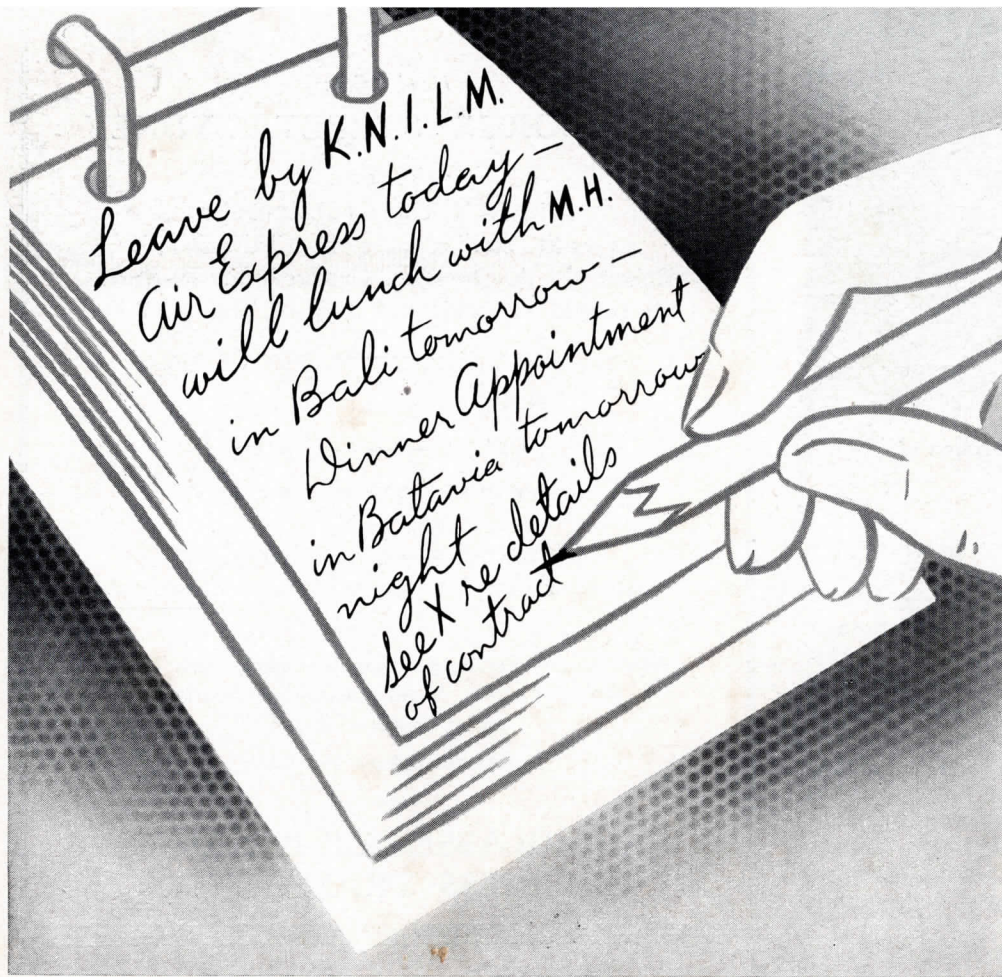 Leave by K.N.I.L.M.
Air Express today –
will lunch with M.H.
in Bali tomorrow –
Dinner Appointment
in Batavia tomorrow
night
See X re details
of contract